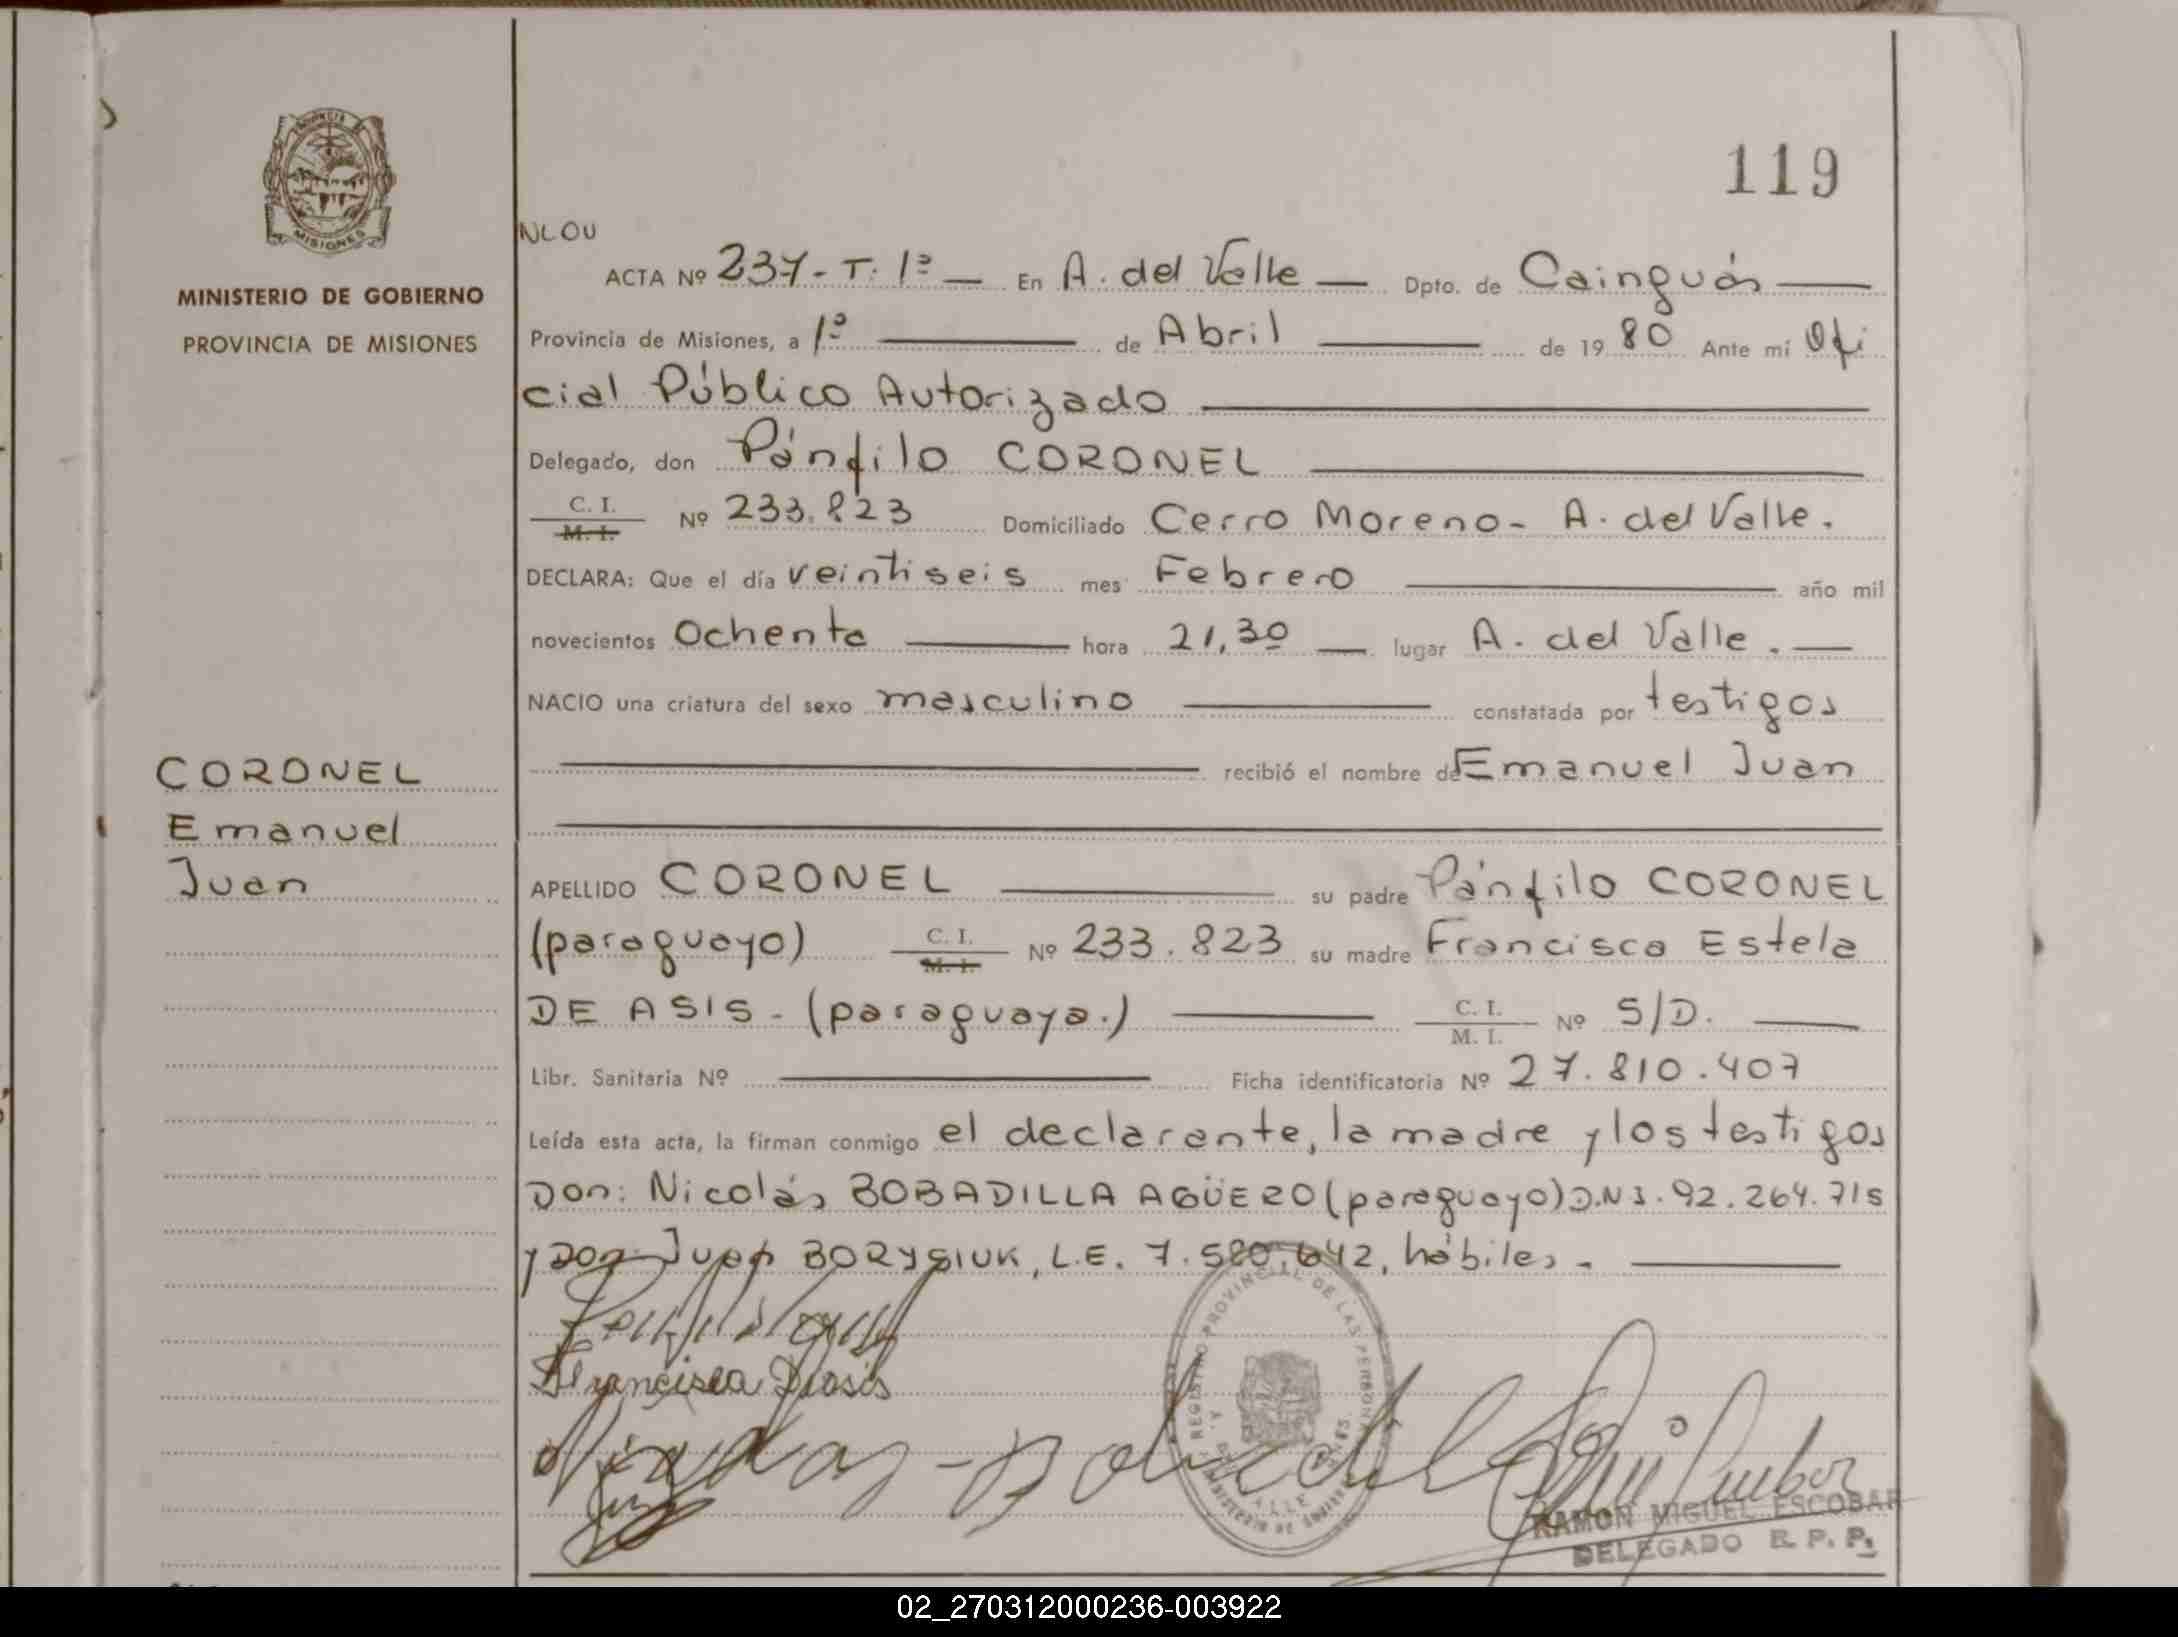 119
PROVINCIA DE
MISIONES
MINISTERIO DE GOBIERNO
PROVINCIA DE MISIONES
NLOU
ACTA Nº 237 - T. 1º — En A. del Valle — Dpto. de Cainguás
Provincia de Misiones, a 1º de Abril de 1980 Ante mí Ofi
cial Público Autorizado
Delegado, don Pánfilo CORONEL
C. I.
M. I. Nº 233.823 Domiciliado Cerro Moreno - A. del Valle.
DECLARA: Que el día veintiseis mes Febrero año mil
novecientos Ochenta hora 21,30 lugar A. del Valle.
NACIO una criatura del sexo masculino constatada por testigos
recibió el nombre de Emanuel Juan
CORONEL
Emanuel
Juan
APELLIDO CORONEL su padre Pánfilo CORONEL
(paraguayo) C. I. M. I. Nº 233.823 su madre Francisca Estela
DE ASIS - (paraguaya.) C. I. M. I. Nº S/D.
Libr. Sanitaria Nº Ficha identificatoria Nº 27.810.407
Leída esta acta, la firman conmigo el declarante, la madre y los testigos
Don: Nicolás BOBADILLA AGÜERO (paraguayo) D.N.I. 92.264.715
y Don Juan BORYSIUK, L.E. 7.580.642, hábiles.
REGISTRO PROVINCIAL DE LAS PERSONAS
Francisca Diasis
RAMON MIGUEL ESCOBAR
DELEGADO R. P. P.
02_270312000236-003922